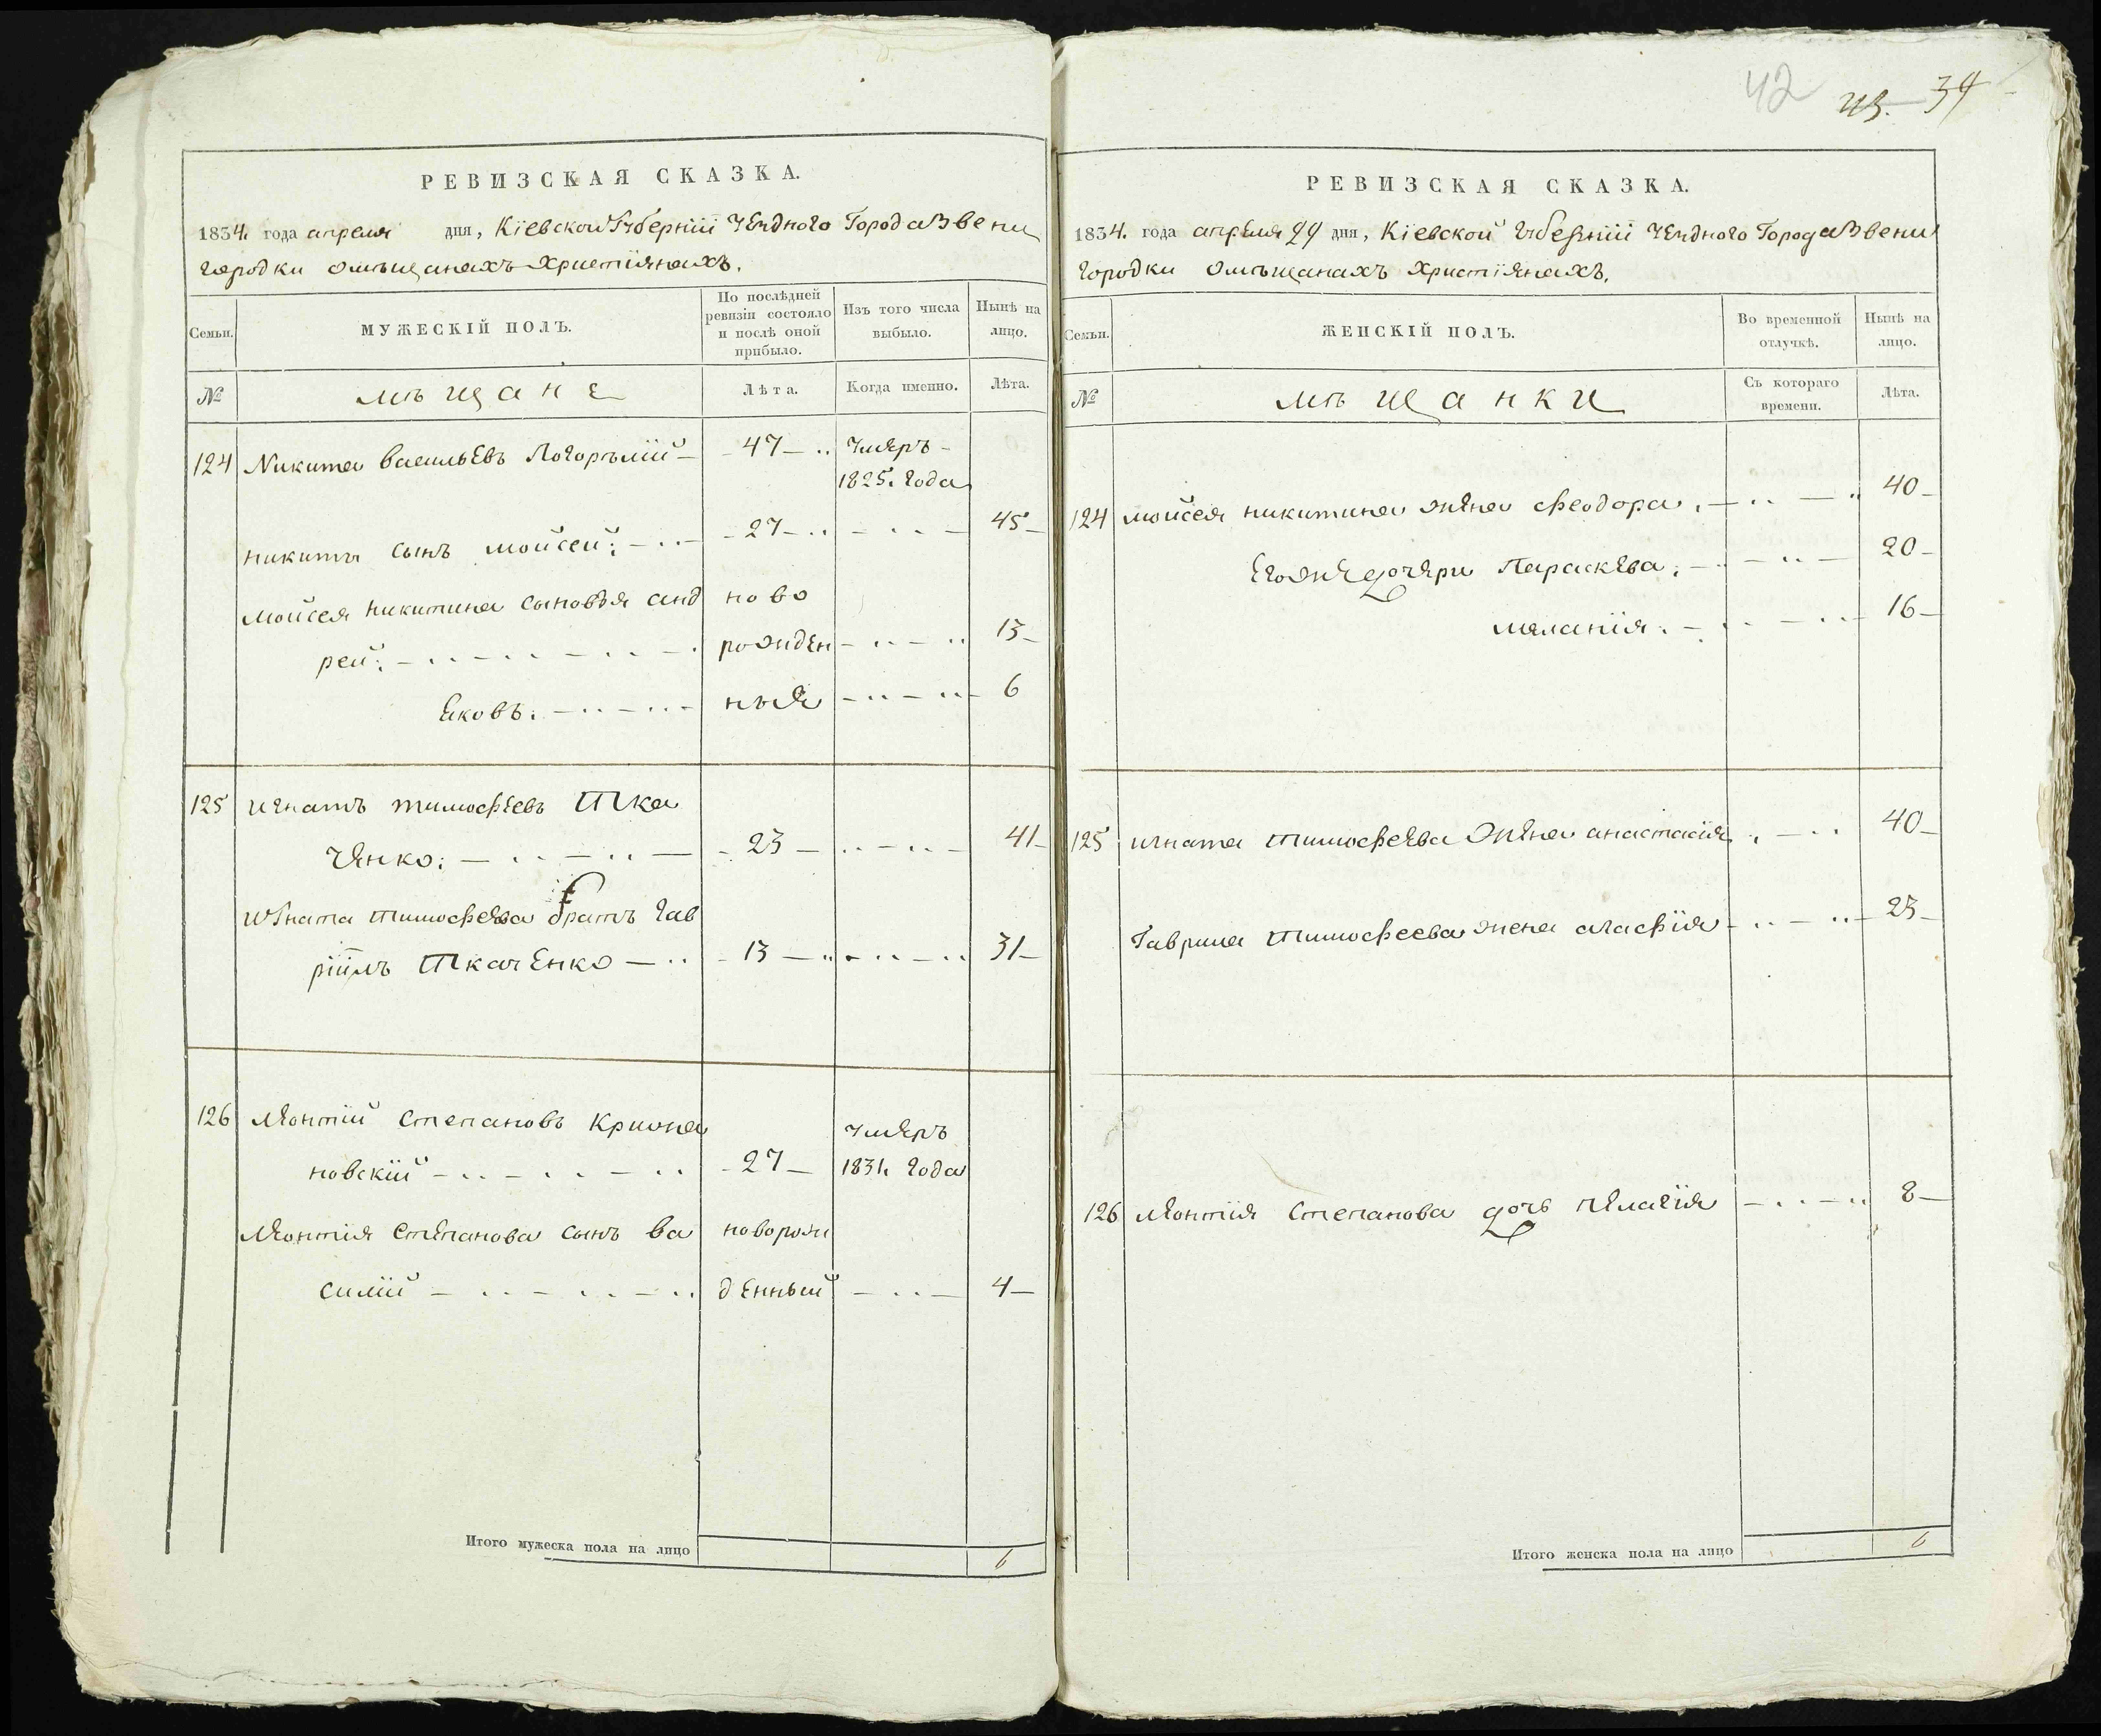 РЕВИЗСКАЯ СКАЗКА.
1834. года апреля дня, Кіевской Губерніи Уездного Города Звени
городки омѣщанахъ Христіянахъ.
Семьи.
МУЖЕСКІЙ ПОЛЪ.
По послѣдней ревизіи состояло и послѣ оной прибыло.
Изъ того числа выбыло.
Нынѣ на лицо.
№
мѣщане
Лѣта.
Когда именно.
Лѣта.
124 Никита васильевъ Погорѣлій 47 Умеръ
1825. года
никиты сынъ мойсей: 27 45
мойсея никитина сыновъя анд ново
рей: рожден 13
Яковъ. ныя 6
125 игнатъ тимофеевъ Тка
ченко: 23 41
игната тимофеева братъ гав
ріилъ Ткаченко 13 31
126 Леонтій степановъ Крижа Умеръ
новскій 27 1831. года
Леонтія степанова сынъ ва новорож
силій денный 4
Итого мужеска пола на лицо 6
42 43. 34
РЕВИЗСКАЯ СКАЗКА.
1834. года апреля 29 дня, Кіевской Губерніи Уездного Города Звени
городки омѣщанахъ христіянахъ.
Семьи.
ЖЕНСКІЙ ПОЛЪ.
Во временной отлучкѣ.
Нынѣ на лицо.
№
мѣщанки
Съ котораго времени.
Лѣта.
124 мойсея никитина жена феодора. 40
Егоже дочери Параскева; 20
меланія: 16
125 игната тимофеева жена анастасія. 40
Гаврила тимофеева жена агафія 23
126 Леонтія степанова дочь пелагія 8
Итого женска пола на лицо 6